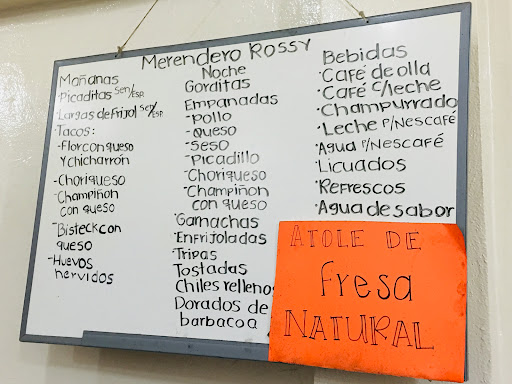 Merendero Rossy
Mañanas
·Picaditas Sen/ESP.
·Largas de Frijol Sen/ESP.
·Tacos:
-Flor con queso
y chicharrón
-Choriqueso
-Champiñon
con queso
-Bisteck con
queso
-Huevos
hervidos
Noche
Gorditas
Empanadas
-pollo
-queso
-seso
-Picadillo
-Choriqueso
-Champiñon
con queso
·Garnachas
·Enfrijoladas
·Tripas
·Tostadas
Chiles rellenos
Dorados de
barbacoa
Bebidas
·Café de olla
·Café c/leche
·Champurrado
·Leche P/Nescafé
·Agua P/Nescafé
·Licuados
·Refrescos
·Agua de sabor
ATOLE DE
fresa
NATURAL